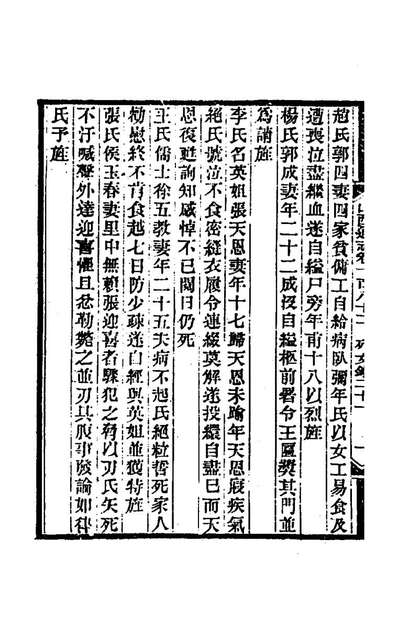 趙氏郭四妻四家貧傭工自給病臥彌年氏以女工易食及
遭喪泣盡繼血遂自縊戸旁年甫十八以烈旌
楊氏郭成妻年二十二成歿自縊柩前署令王匾獎其門並
爲請旌
李氏名英姐張天恩妻年十七歸天恩未踰年天恩寢疾氣
絕氏號泣不食密縫衣履令連綴莫解遂投繯自盡已而天
恩復甦詢知感悼不已閱日仍死
王氏儒士徐五教妻年二十五夫病不起氏絕粒誓死家人
勸慰終不肯食越七日防少疎遂自經與英姐並獲特旌
張氏侯玉春妻里中無賴張迎喜者驟犯之脅以刃氏矢死
不汙喊聲外達迎喜懼且忿勒斃之並刃其腹事發論如律
氏予旌
山西通志卷一百八十二 列女錄二十一